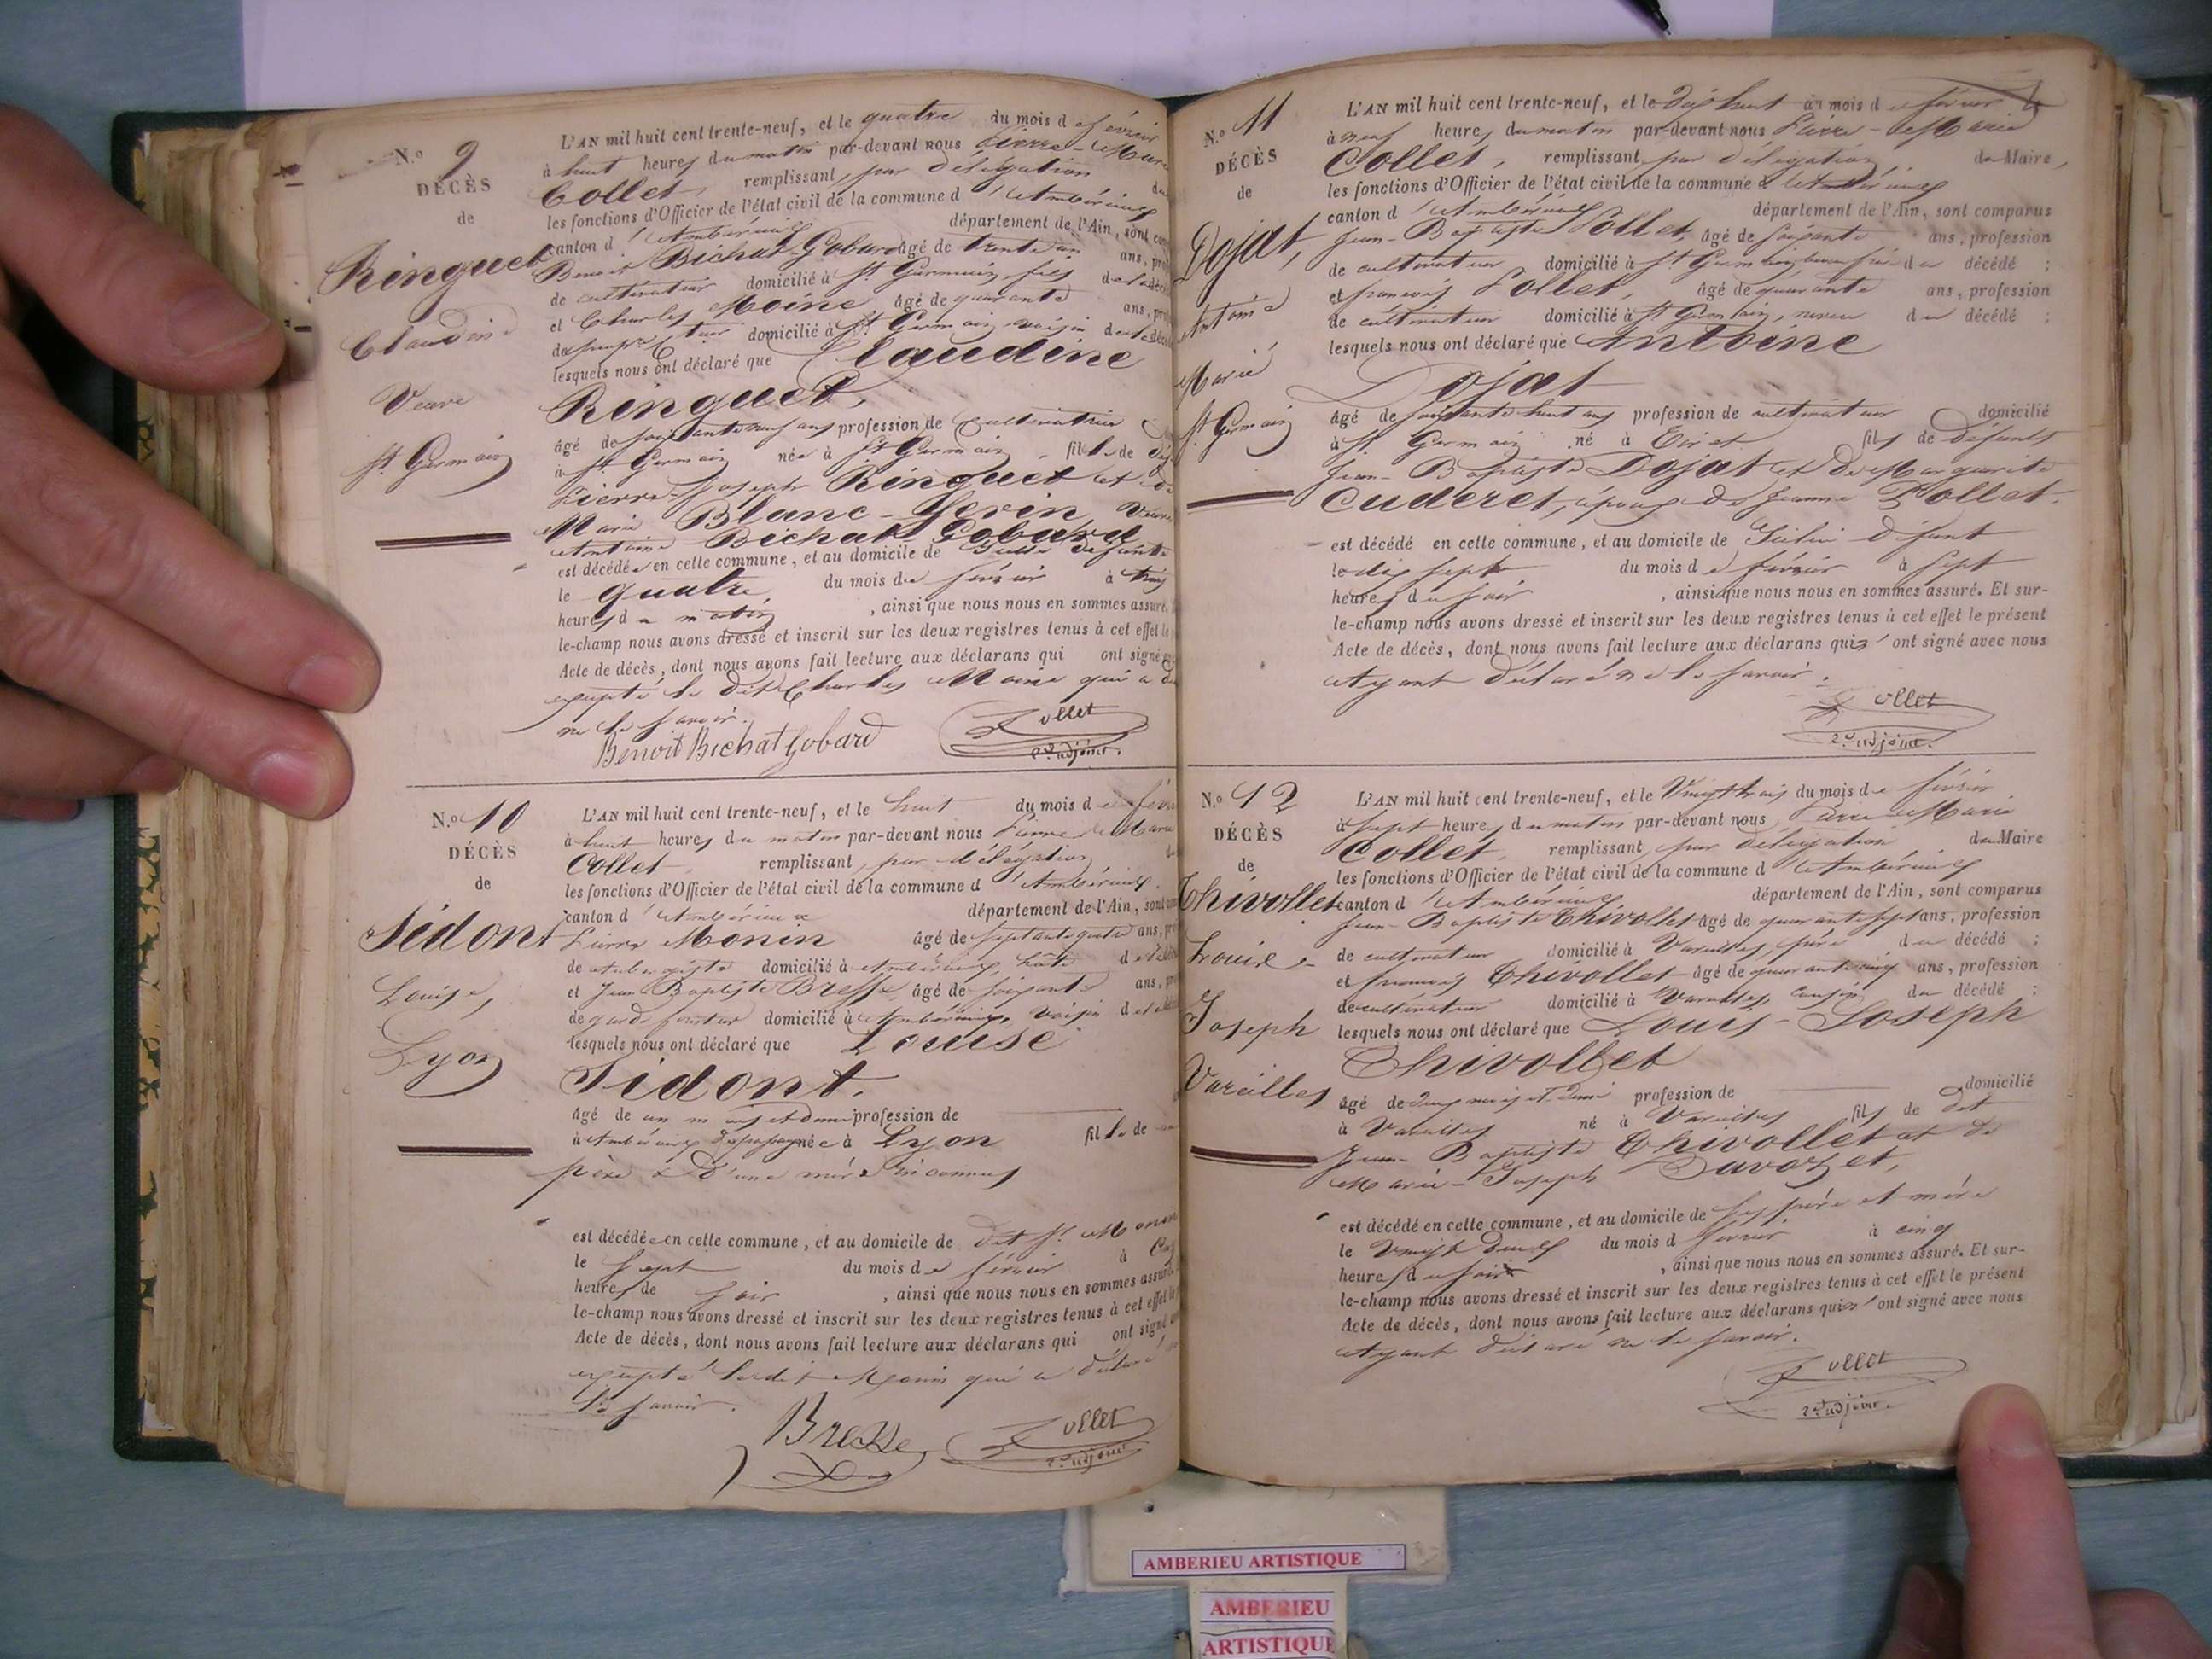 N.º 9
DÉCÈS
de
Ringuet
Claudine
Veuve
St. Germain
L'AN mil huit cent trente-neuf, et le quatre du mois de février
à huit heures du matin par-devant nous Pierre-Marie
Collet, remplissant, par délégation du
les fonctions d'Officier de l'état civil de la commune d'Ambérieux
canton d'Ambérieux département de l'Ain, sont
Benoit Bichat-Gobard âgé de trente un ans,
de cultivateur domicilié à St. Germain, fils de la
et Charles Moine âgé de quarante ans,
domicilié à St. Germain, voisin de la
lesquels nous ont déclaré que Claudine
Ringuet,
âgé de soixante neuf ans profession de cultivatrice
à St. Germain née à St. Germain, fille de
Pierre-Joseph Ringuet et de
Marie Blanc-Gerin Veuve
Antoine Bichat Gobard
est décédée en cette commune, et au domicile de
le quatre du mois de février à trois
heures du matin, ainsi que nous nous en sommes assuré.
le-champ nous avons dressé et inscrit sur les deux registres tenus à cet effet le
Acte de décès, dont nous avons fait lecture aux déclarans qui ont signé
excepté le dit Charles Moine qui a
ne le savoir.
Benoit Bichat Gobard
Collet
2.d adjoint.
N.º 10
DÉCÈS
de
Sidont
Louise,
Lyon
L'AN mil huit cent trente-neuf, et le huit du mois de
à huit heures du matin par-devant nous Pierre Marie
Collet remplissant, par délégation
les fonctions d'Officier de l'état civil de la commune d'Ambérieux
canton d'Ambérieux département de l'Ain, sont
Pierre Monin âgé de septante quatre ans,
de aubergiste domicilié à Ambérieux,
et Jean-Baptiste Bresse, âgé de soixante ans,
de garde forestier domicilié à Ambérieux, voisin
lesquels nous ont déclaré que Louise
Sidont.
âgé de un mois et demi profession de
à Ambérieux née à Lyon fille de
père & d'une mère inconnus
est décédée en cette commune, et au domicile de dit Sr. Monin
le sept du mois de février à
heures de soir, ainsi que nous nous en sommes assuré
le-champ nous avons dressé et inscrit sur les deux registres tenus à cet effet
Acte de décès, dont nous avons fait lecture aux déclarans qui ont signé
excepté ledit Monin qui a déclaré
le savoir.
Bresse
Collet
2.d adjoint
N.º 11
DÉCÈS
de
Dojat,
Antoine
Marié
St. Germain
L'AN mil huit cent trente-neuf, et le dix huit du mois de février
à neuf heures du matin par-devant nous Pierre-Marie
Collet, remplissant, par délégation, du Maire,
les fonctions d'Officier de l'état civil de la commune d'Ambérieux
canton d'Ambérieux département de l'Ain, sont comparus
Jean-Baptiste Pollet, âgé de soixante ans, profession
de cultivateur domicilié à St. Germain, beau frère du décédé ;
et françois Pollet, âgé de quarante ans, profession
de cultivateur domicilié à St Germain, neveu du décédé ;
lesquels nous ont déclaré que Antoine
Dojat
âgé de soixante huit ans profession de cultivateur domicilié
à St. Germain né à fils de défunts
Jean-Baptiste Dojat et de Marguerite
Cuderet, époux de Jeanne Pollet.
est décédé en cette commune, et au domicile de défunt
le dix sept du mois de février à sept
heures du soir, ainsi que nous nous en sommes assuré. Et sur-
le-champ nous avons dressé et inscrit sur les deux registres tenus à cet effet le présent
Acte de décès, dont nous avons fait lecture aux déclarans qui n'ont signé avec nous
ayant déclaré ne le savoir.
Collet
2.d adjoint.
N.º 12
DÉCÈS
de
Thivollet
Louis-
Joseph
Vareilles
L'AN mil huit cent trente-neuf, et le Vingt trois du mois de février
à sept heures du matin par-devant nous Pierre Marie
Collet, remplissant, par délégation du Maire
les fonctions d'Officier de l'état civil de la commune d'Ambérieux
canton d'Ambérieux département de l'Ain, sont comparus
Jean-Baptiste Thivollet âgé de quarante sept ans, profession
de cultivateur domicilié à Vareilles, père du décédé ;
et françois Thivollet âgé de quarante cinq ans, profession
de cultivateur domicilié à Vareilles, cousin du décédé ;
lesquels nous ont déclaré que Louis-Joseph
Thivollet
âgé de deux mois et demi profession de domicilié
à Vareilles né à Vareilles fils de dit
Jean-Baptiste Thivollet et de
Marie-Joseph
est décédé en cette commune, et au domicile de ses père et mère
le Vingt deux du mois d février à cinq
heures du soir, ainsi que nous nous en sommes assuré. Et sur-
le-champ nous avons dressé et inscrit sur les deux registres tenus à cet effet le présent
Acte de décès, dont nous avons fait lecture aux déclarans qui n'ont signé avec nous
ayant déclaré ne le savoir.
Collet
2.d adjoint.
AMBERIEU ARTISTIQUE
AMBERIEU
ARTISTIQUE